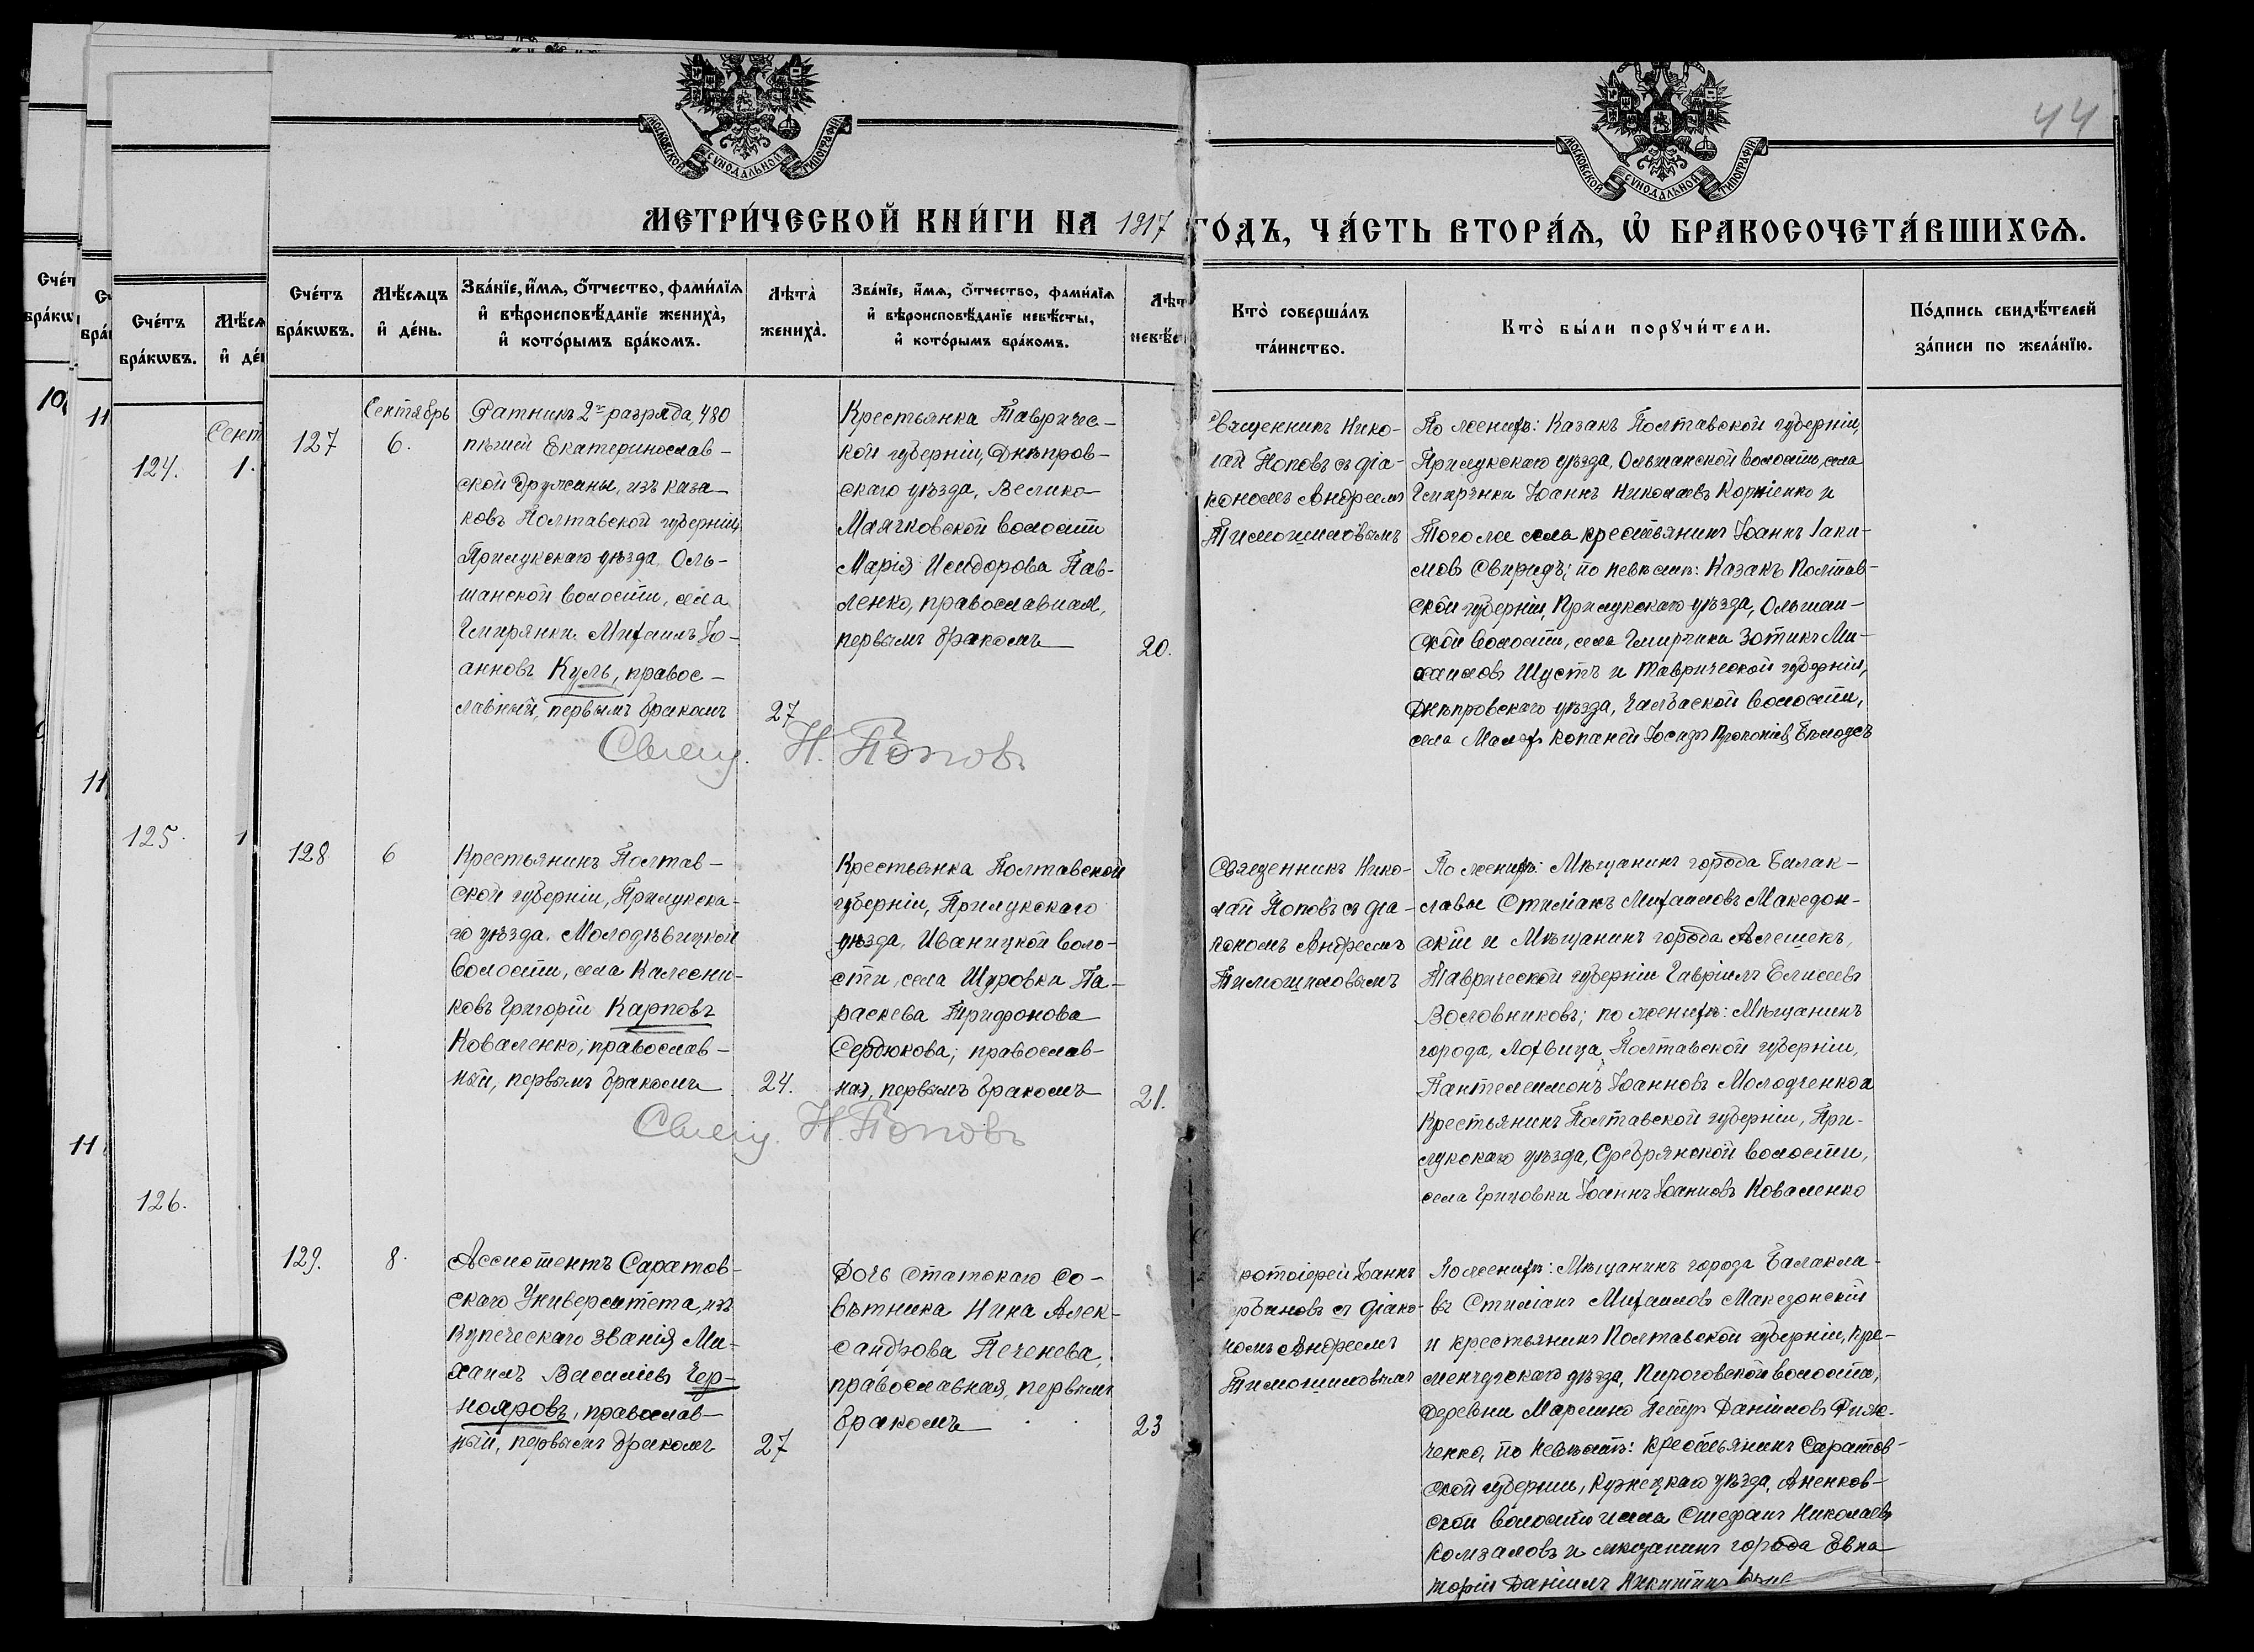 44
МОСКОВСКОЙ СѴНОДАЛЬНОЙ ТИПОГРАФІИ
МОСКОВСКОЙ СѴНОДАЛЬНОЙ ТИПОГРАФІИ
МЕТРИ́ЧЕСКОЙ КНИ́ГИ НА 1917 ГО́ДЪ, ЧА́СТЬ ВТОРА́Ѧ, Ѡ БРАКОСОЧЕТА́ВШИХСѦ.
Сче́тъ бра́кѡвъ.
Мѣ́сѧцъ и де́нь.
Зва́нїе, и́мѧ, ѻ́тчество, фами́лїѧ и вѣроисповѣ́данїе жениха̀, и кото́рымъ бра́комъ.
Лѣта̀ жениха̀.
Зва́нїе, и́мѧ, ѻ́тчество, фами́лїѧ и вѣроисповѣ́данїе невѣ́сты, и кото́рымъ бра́комъ.
Лѣт
невѣс
Кто̀ соверша́лъ та́инство.
Кто̀ бы́ли порꙋчи́тели.
По́дпись свидѣ́телей за́писи по жела́нїю.
Сче́тъ бра́кѡвъ.
Сент
124. 1.
125. 1
126.
127
Сентябрь
6.
Ратникъ 2го разряда, 480
пѣшей Екатеринослав-
ской дружины, изъ каза-
ковъ Полтавской губерніи,
Прилукскаго уѣзда, Оль-
шанской волости, села
Гмирянки Михаилъ Іо-
анновъ Куль, правос-
лавный, первымъ бракомъ
27
Крестьянка Тавричес-
кой губерніи, Днѣпров-
скаго уѣзда, Велико-
Маячковской волости
Марія Исидорова Пав-
ленко, православная,
первымъ бракомъ
20.
Священникъ Нико-
лай Поповъ съ діа-
кономъ Андреемъ
Тимошиловымъ
По женихѣ: Казакъ Полтавской губерніи,
Прилукскаго уѣзда, Ольшанской волости, села
Гмирянки Іоаннъ Николаевъ Корніенко и
Того же села крестьянинъ Іоаннъ Іаки-
мовъ Свиридъ; по невѣстѣ: Казакъ Полтав-
ской губерніи, Прилукскаго уѣзда, Ольшан-
ской волости, села Гмирянки Зотикъ Ми-
хаиловъ Шустъ и Таврической губерніи,
Днѣпровскаго уѣзда, Чалбаской волости,
села Малых Копаней Прокопіевъ
Свящ. Н. Поповъ
128
6
Крестьянинъ Полтав-
ской губерніи, Прилукска-
го уѣзда, Молодѣвицкой
волости, села Калесни-
ковъ Григорій Карповъ
Коваленко; православ-
ный, первымъ бракомъ
24.
Крестьянка Полтавской
губерніи, Прилукскаго
уѣзда, Иваницкой воло-
сти, села Щуровки Па-
раскева Трифонова
Сердюкова; православ-
ная, первымъ бракомъ
21.
Священникъ Нико-
лай Поповъ съ діа-
кономъ Андреемъ
Тимошиловымъ
По женихѣ: Мѣщанинъ города Балак-
лавы Стиліанъ Михаиловъ Македон-
скій и Мѣщанинъ города Алешекъ,
Таврической губерніи Гавріилъ Елисеевъ
Воловниковъ; по женихѣ: Мѣщанинъ
города, Лохвица, Полтавской губерніи,
Пантелеимонъ Іоанновъ Молодченко и
Крестьянинъ Полтавской губерніи, При-
лукскаго уѣзда, Сребрянской волости,
села Грицовки Іоаннъ Іоанновъ Коваленко
Свящ. Н. Поповъ
129.
8.
Ассистентъ Саратов-
скаго Университета, изъ
Купеческаго званія Ми-
хаилъ Василіевъ Чер-
нояровъ, православ-
ный, первымъ бракомъ
27
Дочь Статскаго Со-
вѣтника Нина Алек-
сандрова Печенева,
православная, первымъ
бракомъ
23
ротоіерей Іоаннъ
съ діако-
номъ Андреемъ
Тимошиловымъ
По женихѣ: Мѣщанинъ города Балакла-
вы Стиліанъ Михаиловъ Македонскій
и крестьянинъ Полтавской губерніи, Кре-
менчугскаго уѣзда, Пироговской волости,
деревни Марешко Петръ Даніиловъ Риж-
ченко, по невѣстѣ: крестьянинъ Саратов-
ской губерніи, Кузнецкаго уѣзда, Аненков-
ской волости и села Стефанъ Николаевъ
Комзаловъ и мѣщанинъ города Евпа-
торіи Даніилъ Никитинъ